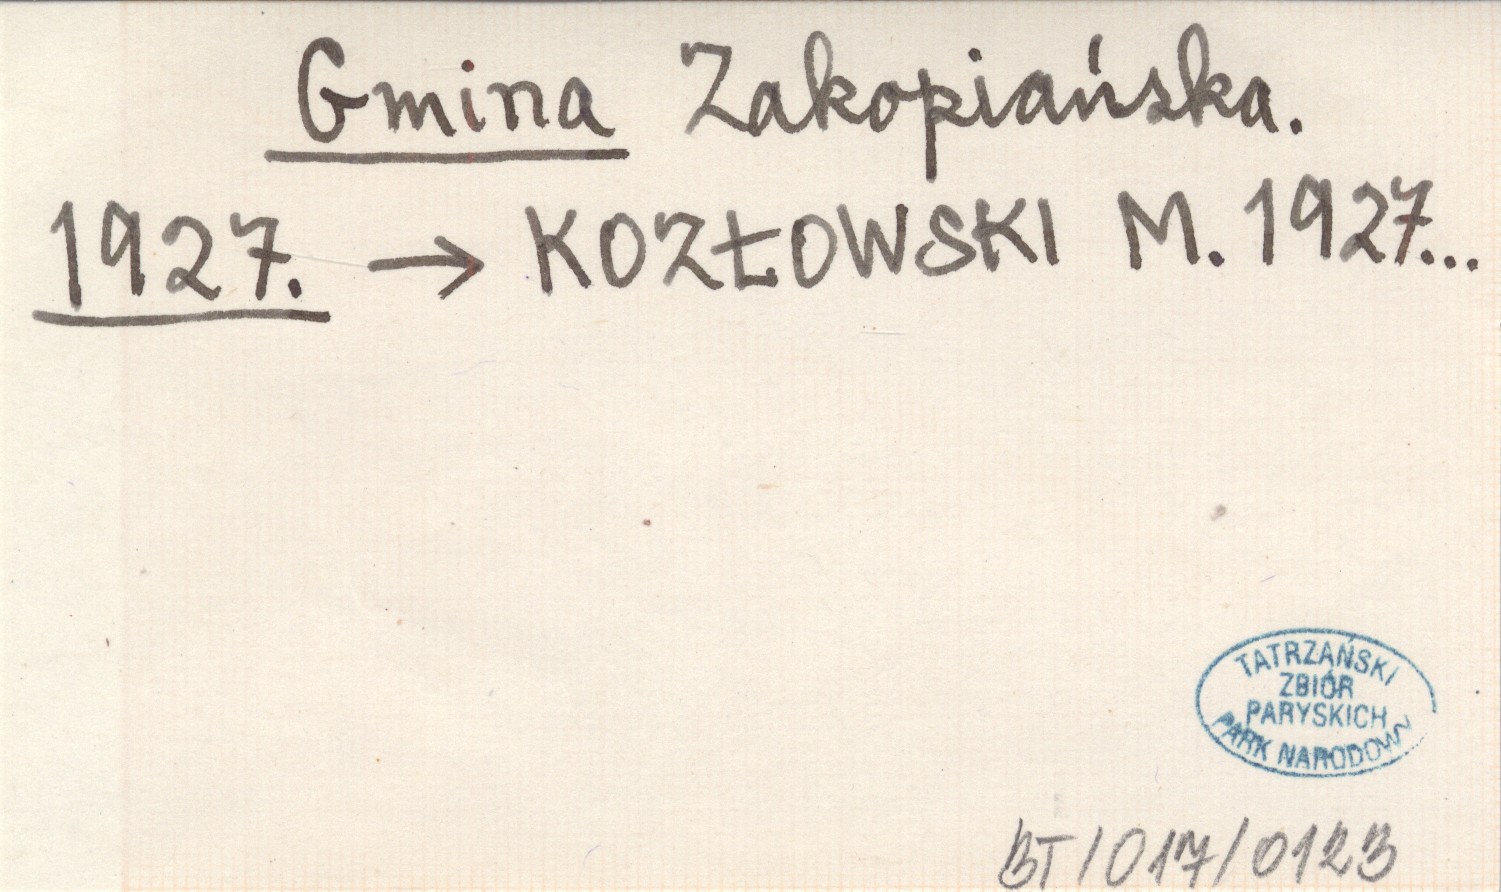 Gmina Zakopiańska.
1927. → KOZŁOWSKI M. 1927...
TATRZAŃSKI
ZBIÓR
PARYSKICH
PARK NARODOWY
BT/017/0123